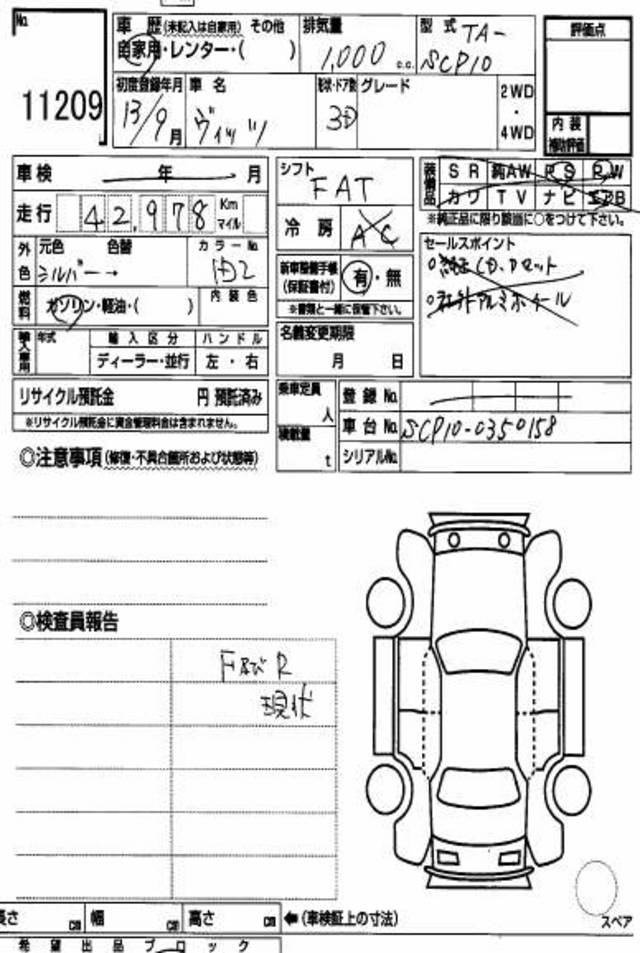 No.
11209
車歴(未記入は自家用) その他
自家用・レンター・( )
排気量
1,000 c.c.
型式 TA-
SCP10
評価点
初度登録年月
13/9月
車名
ヴィッツ
形状・ドア数
3D
グレード
2WD
・
4WD
内装
補助評価
車検 年 月
走行 42,978 Km
マイル
シフト
FAT
冷房 AC
装備品
SR 純AW PS PW
カワ TV ナビ エアB
※純正品に限り該当に○をつけて下さい。
外色
元色 色替
シルバー→
カラーNo.
1D2
燃料
ガソリン・軽油・( )
内装色
新車整備手帳
(保証書付)
有・無
※書類と一緒に保管下さい。
セールスポイント
輸入車用
年式
輸入区分
ディーラー・並行
ハンドル
左・右
名義変更期限
月 日
リサイクル預託金 円 預託済み
※リサイクル預託金に資金管理料金は含まれません。
乗車定員
人
積載量
t
登録No.
車台No. SCP10-0350158
シリアルNo.
◎注意事項(修復・不具合箇所および状態等)
◎検査員報告
F及びR
現状
スペア
長さ cm 幅 cm 高さ cm ←(車検証上の寸法)
希望出品ブロック